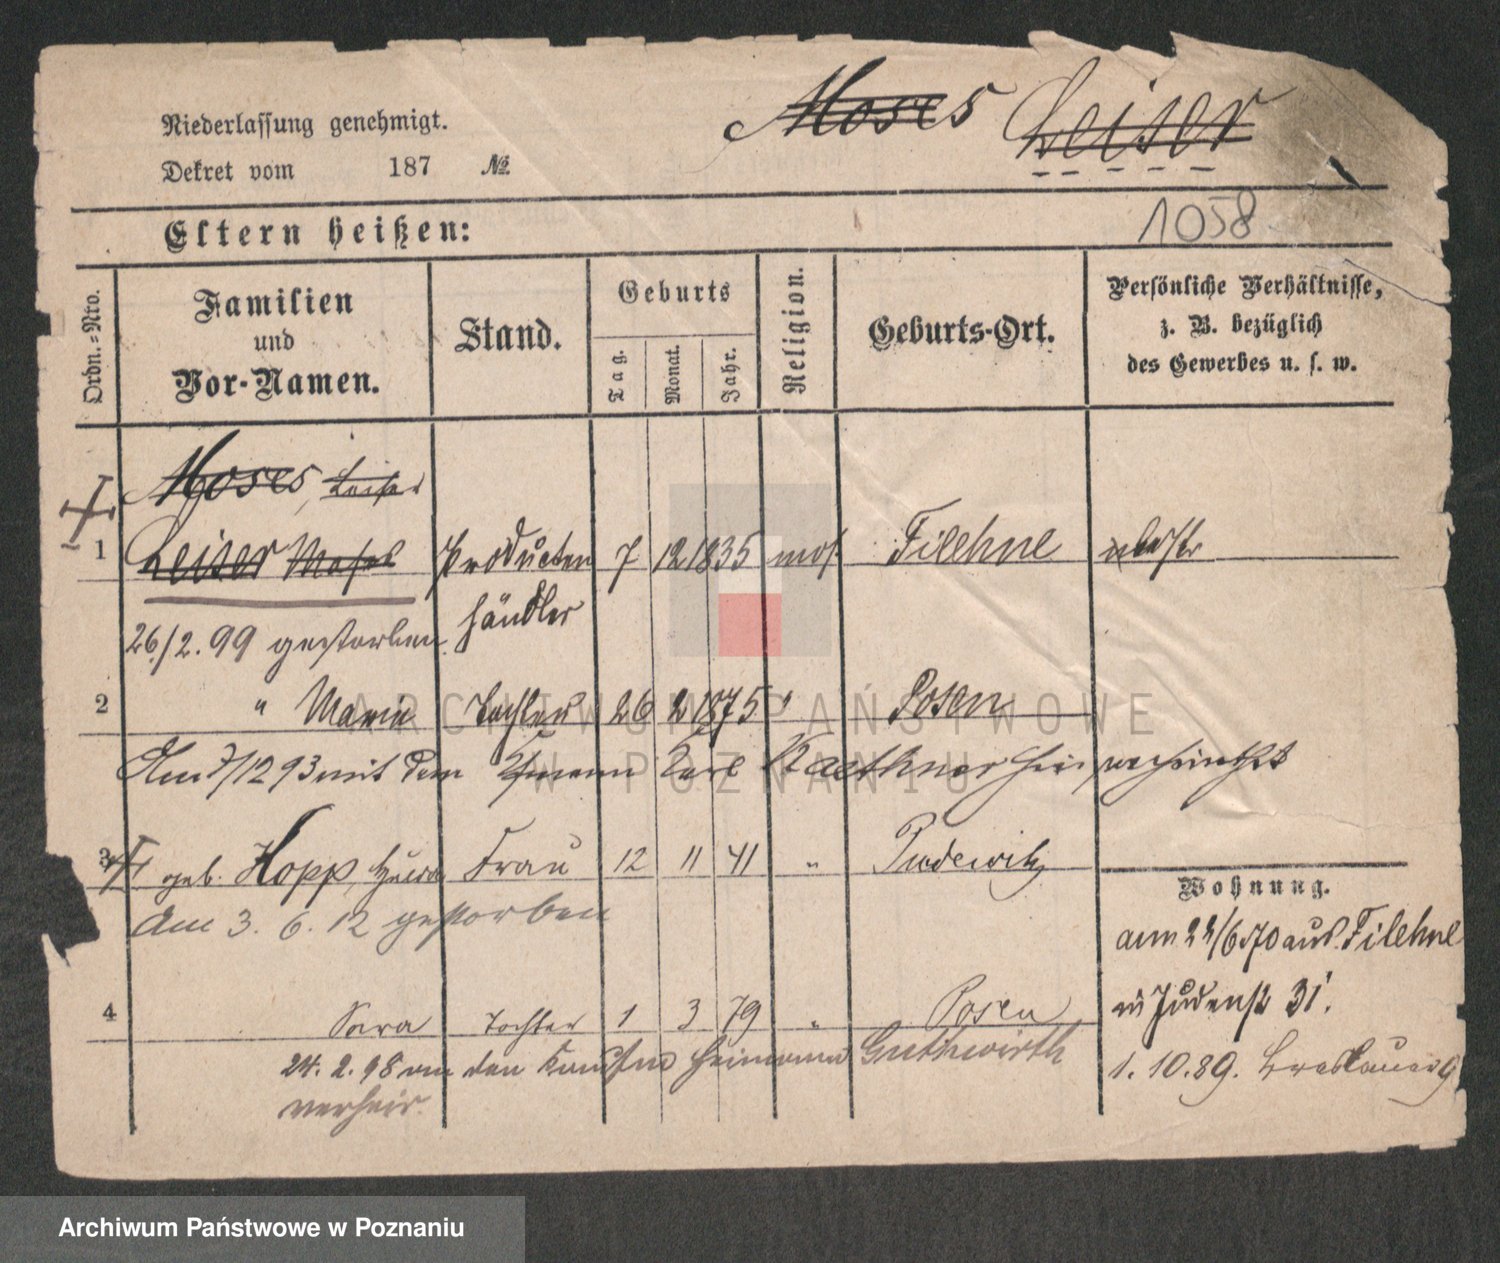 Niederlassung genehmigt.
Dekret vom 187 №
Moses Leiser
Eltern heißen:
1058
Ordn.-Nro.
Familien und Vor-Namen.
Stand.
Geburts
Tag.
Monat.
Jahr.
Religion.
Geburts-Ort.
Persönliche Verhältnisse,
z. B. bezüglich
des Gewerbes u. s. w.
Moses, Leiser
1 Leiser Moses Producten 7 12 1835 mos. Filehne
händler
26./2. 99 gestorben
2 " Marie Tochter 26 2 1875 " Posen
Am 7/12 93 mit dem Kfmann Karl Kaethner hier verheirathet
3 geb. Hopp, Frau 12 11 41 " Pudewitz
Am 3. 6. 12 gestorben
Wohnung.
am 22/6 70 aus Filehne
Judenstr 31.
4 Sara Tochter 1 3 79 " Posen
24. 2. 98 an den Kaufm Heimann Guthwirth
verheir.
1. 10. 89. Breslauer 9
ARCHIWUM PAŃSTWOWE
W POZNANIU
Archiwum Państwowe w Poznaniu